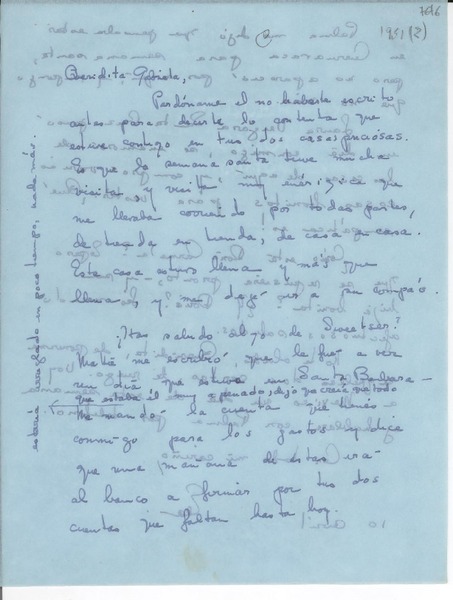 746
1951 (2)
Queridita Gabriela,
Perdóname el no haberte escrito
antes para decirte lo contenta que
estuve contigo en tus dos casas graciosas.
Es que la semana santa tuve mucha
visita, y visita muy energica que
me llevaba corriendo por todas partes,
de tienda en tienda, de casa en casa.
Esta casa estuvo llena y más que
llena, y me dejó
¿Has sabido algo de Sweetser?
me escribió, que la fué a ver
un día que estuvo en Santa Barbara -
que estaba él muy apenado; dijo que creía que todo
Me mandó la cuenta que tienes
conmigo para los gastos y dice
que una mañana de estas irá
al banco a firmar por tus dos
cuentas que faltan hasta hoy.
estaría arreglado en poco tiempo, nada más.